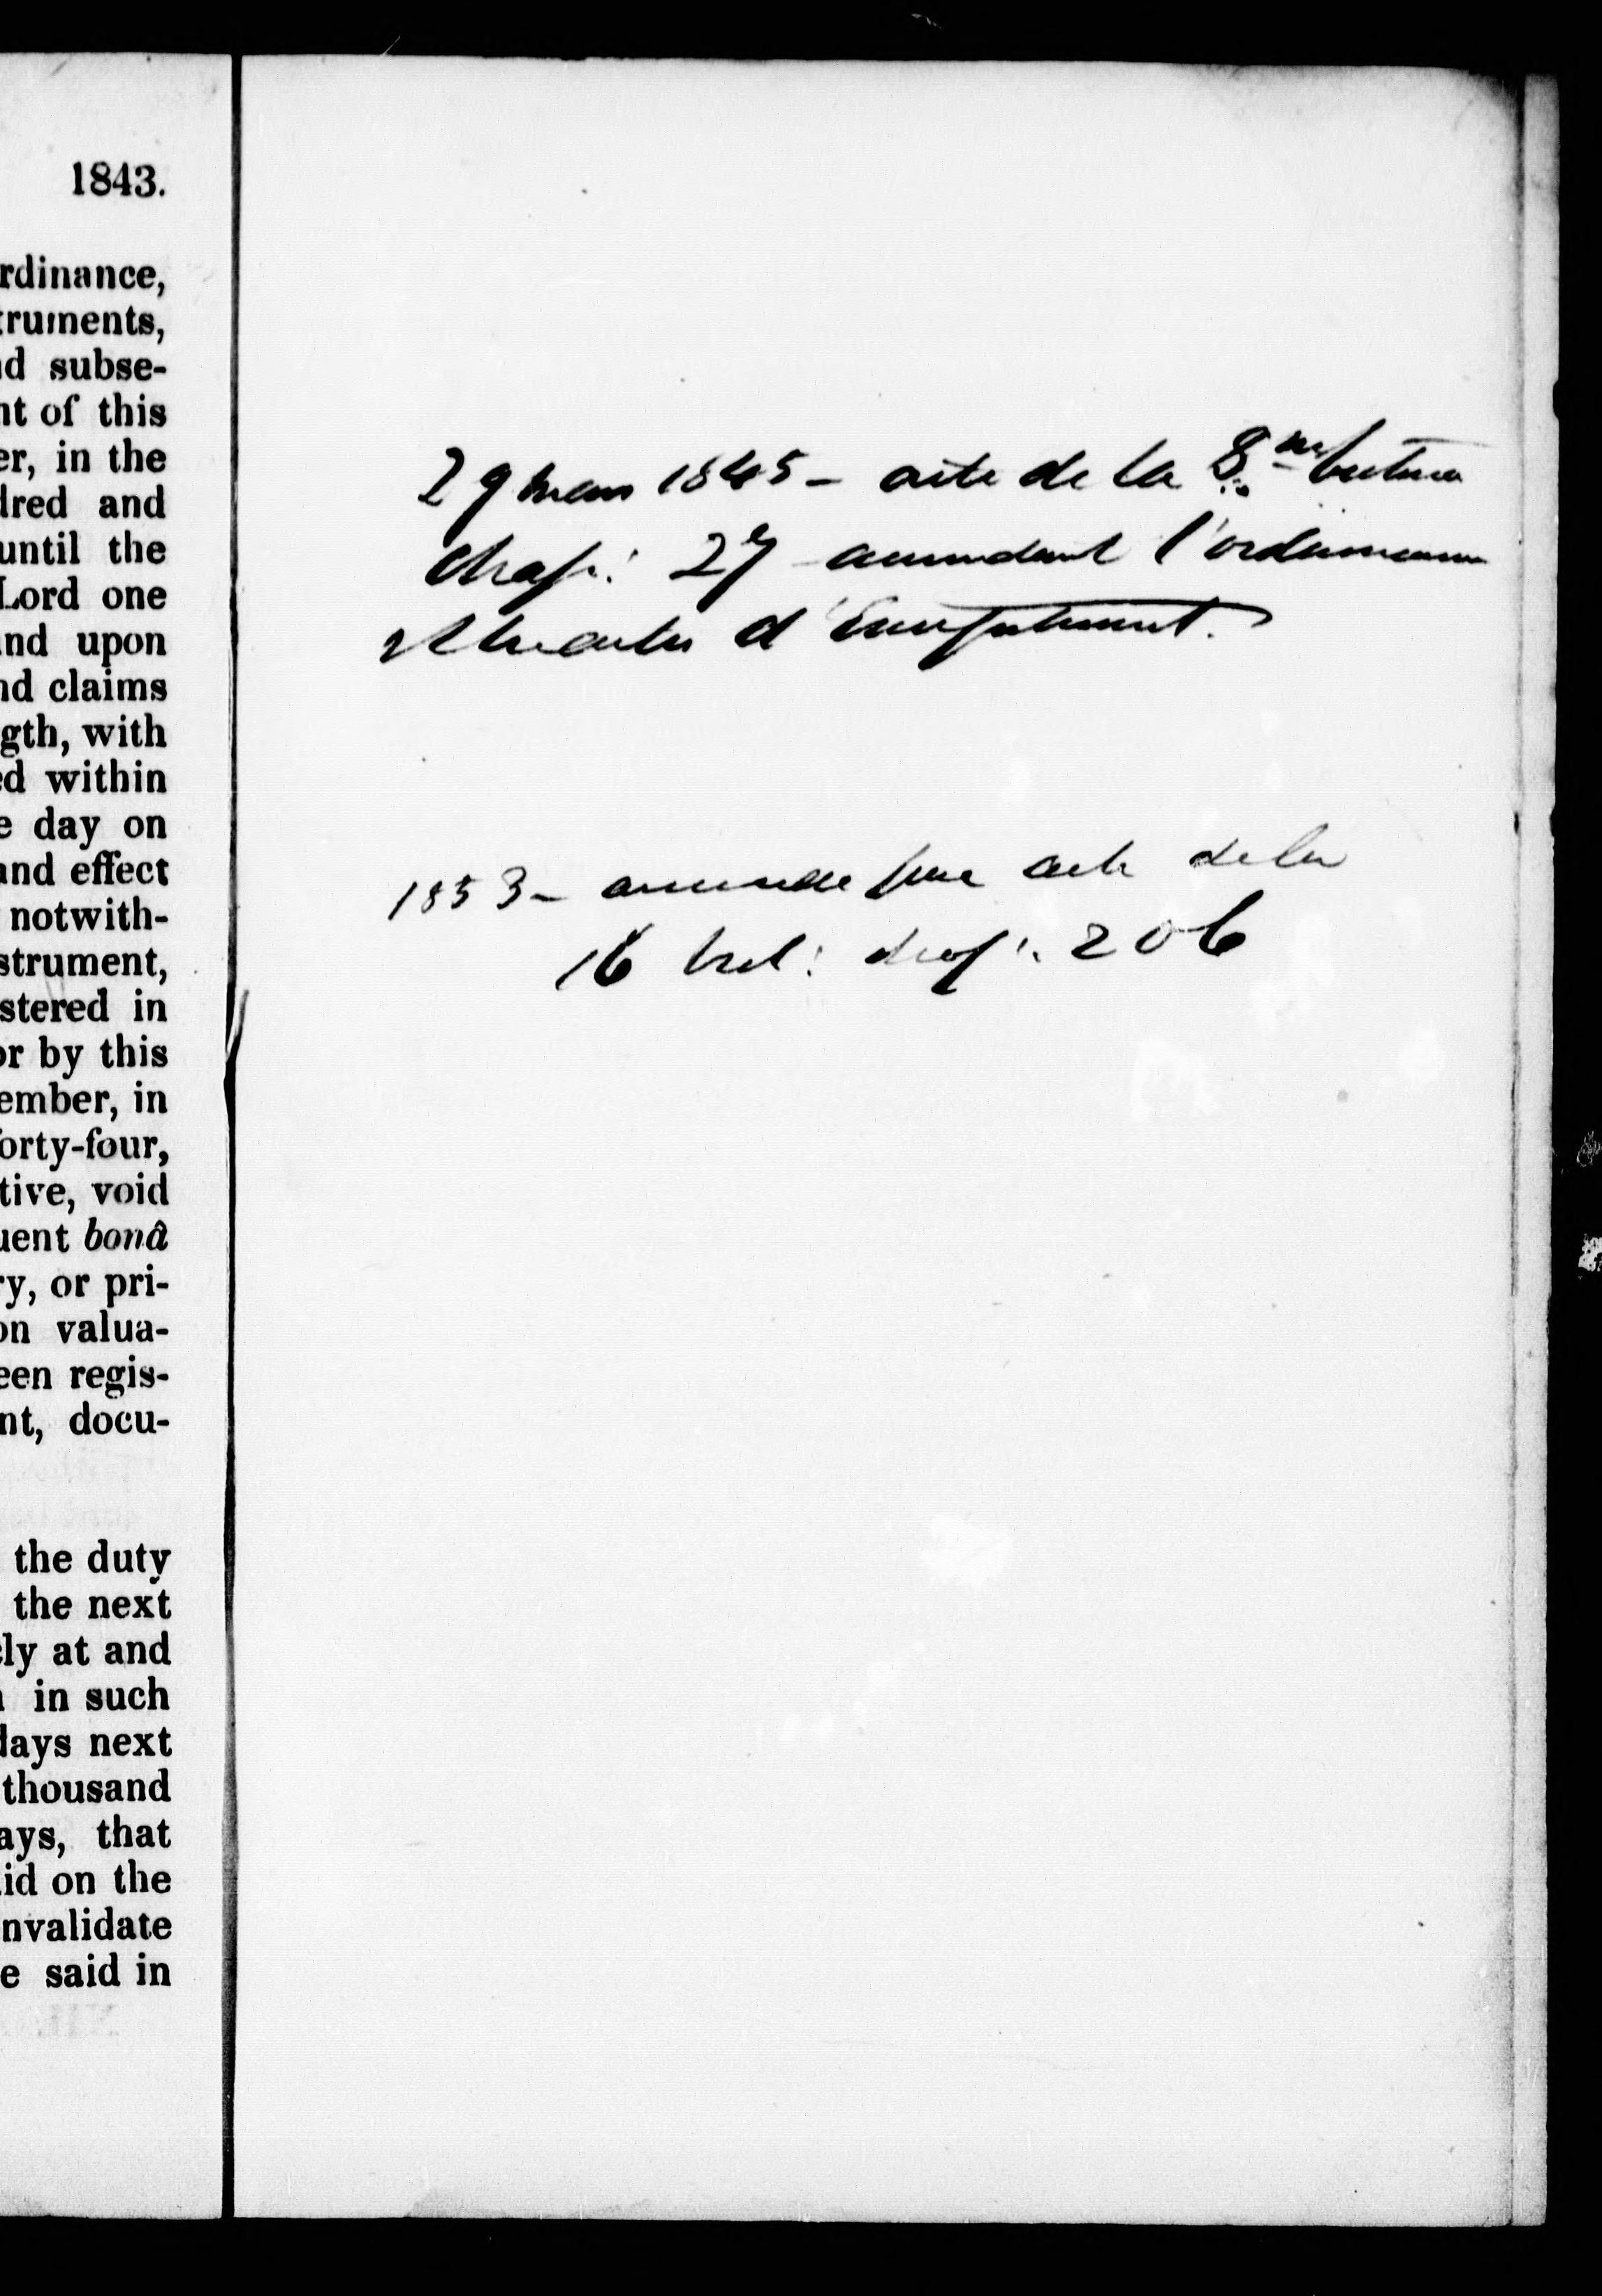 1843.
rdinance,
truments,
d subse-
nt of this
er, in the
dred and
until the
Lord one
and upon
nd claims
gth, with
ed within
e day on
and effect
notwith-
strument,
stered in
or by this
ember, in
forty-four,
tive, void
uent bonâ
ry, or pri-
on valua-
een regis-
nt, docu-
the duty
the next
ly at and
in such
days next
thousand
ays, that
id on the
nvalidate
e said in
29 mars 1845 - acte de la 8me Victoria
Chap: 27 amendant l'ordonnance
d'Enregistrement.
1853 - amendé par acte de la
16 Vict: chap: 206